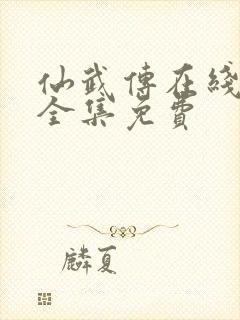 仙武傳在綫
全集免費
麟夏